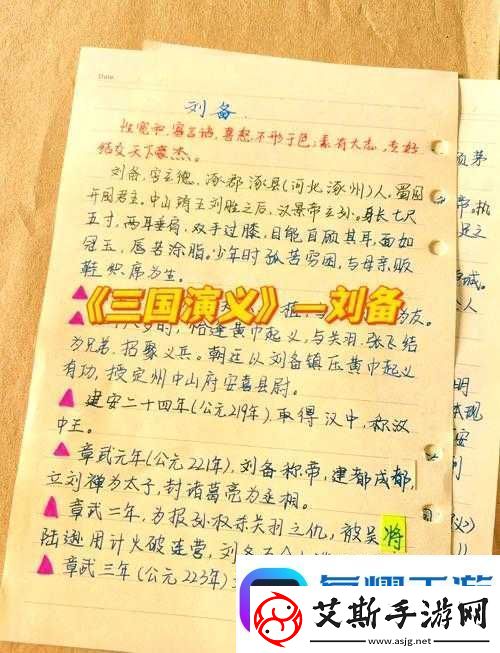 Date
刘备
性宽和,寡言语,喜怒不形于色;素有大志,专好
结交天下豪杰。
刘备,字玄德,涿郡涿县(河北涿州)人,蜀国
开国君主,中山靖王刘胜之后,汉景帝玄孙。身长七尺
五寸,两耳垂肩,双手过膝,目能自顾其耳,面如
冠玉,唇若涂脂。少年时孤苦穷困,与母亲贩
鞋织席为生。
《三国演义》—刘备
为友。
时,恰逢黄巾起义,与关羽、张飞结
为兄弟,招聚义兵。朝廷以刘备镇压黄巾起义
有功,授定州中山府安喜县尉。
建安二十四年(公元219年),取得汉中,称汉
中王。
章武元年(公元221年),刘备称帝,建都成都,
立刘禅为太子,封诸葛亮为丞相。
章武二年,为报孙权杀关羽之仇,被吴将
陆逊用计火破连营,刘备
章武三年(公元223年)
艾斯手游网
www.asjg.net